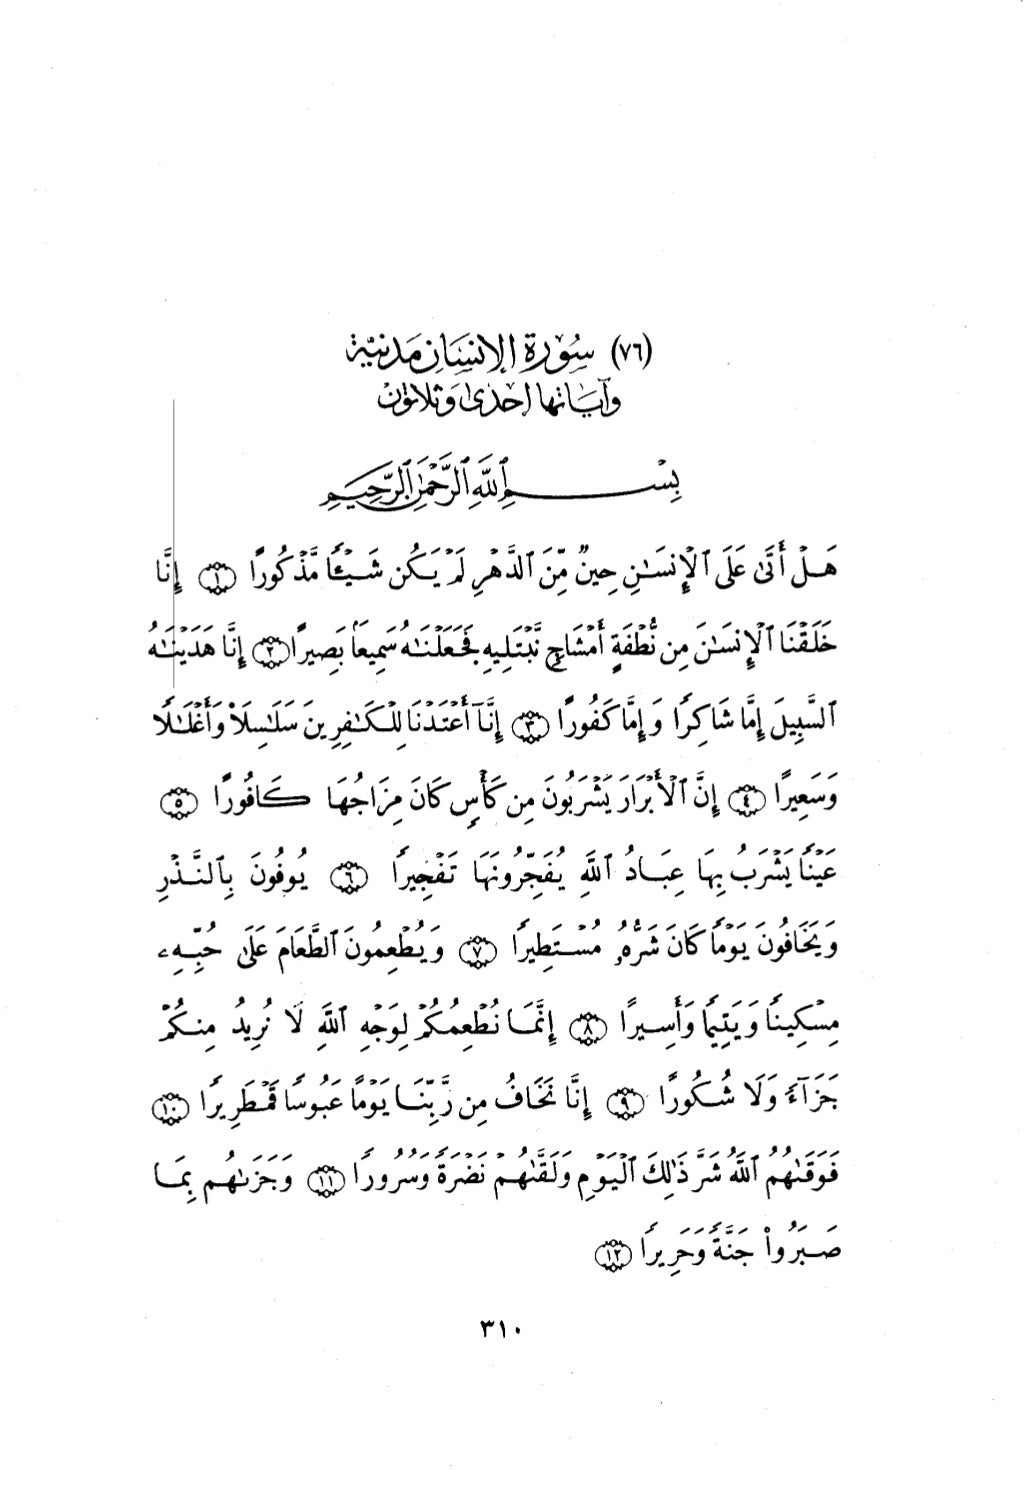 (٧٦) سُورَةُ الإِنسَانِ مَدَنِيَّة
وَآيَاتُهَا إِحْدَىٰ وَثَلَاثُونَ
بِسْمِ ٱللَّهِ ٱلرَّحْمَٰنِ ٱلرَّحِيمِ
هَلْ أَتَىٰ عَلَى ٱلْإِنسَٰنِ حِينٌ مِّنَ ٱلدَّهْرِ لَمْ يَكُن شَيْـًٔا مَّذْكُورًا ﴿١﴾ إِنَّا
خَلَقْنَا ٱلْإِنسَٰنَ مِن نُّطْفَةٍ أَمْشَاجٍ نَّبْتَلِيهِ فَجَعَلْنَٰهُ سَمِيعًۢا بَصِيرًا ﴿٢﴾ إِنَّا هَدَيْنَٰهُ
ٱلسَّبِيلَ إِمَّا شَاكِرًا وَإِمَّا كَفُورًا ﴿٣﴾ إِنَّآ أَعْتَدْنَا لِلْكَٰفِرِينَ سَلَٰسِلَا۟ وَأَغْلَٰلًا
وَسَعِيرًا ﴿٤﴾ إِنَّ ٱلْأَبْرَارَ يَشْرَبُونَ مِن كَأْسٍ كَانَ مِزَاجُهَا كَافُورًا ﴿٥﴾
عَيْنًا يَشْرَبُ بِهَا عِبَادُ ٱللَّهِ يُفَجِّرُونَهَا تَفْجِيرًا ﴿٦﴾ يُوفُونَ بِٱلنَّذْرِ
وَيَخَافُونَ يَوْمًا كَانَ شَرُّهُۥ مُسْتَطِيرًا ﴿٧﴾ وَيُطْعِمُونَ ٱلطَّعَامَ عَلَىٰ حُبِّهِۦ
مِسْكِينًا وَيَتِيمًا وَأَسِيرًا ﴿٨﴾ إِنَّمَا نُطْعِمُكُمْ لِوَجْهِ ٱللَّهِ لَا نُرِيدُ مِنكُمْ
جَزَآءً وَلَا شُكُورًا ﴿٩﴾ إِنَّا نَخَافُ مِن رَّبِّنَا يَوْمًا عَبُوسًا قَمْطَرِيرًا ﴿١٠﴾
فَوَقَىٰهُمُ ٱللَّهُ شَرَّ ذَٰلِكَ ٱلْيَوْمِ وَلَقَّىٰهُمْ نَضْرَةً وَسُرُورًا ﴿١١﴾ وَجَزَىٰهُم بِمَا
صَبَرُوا۟ جَنَّةً وَحَرِيرًا ﴿١٢﴾
٣١٠